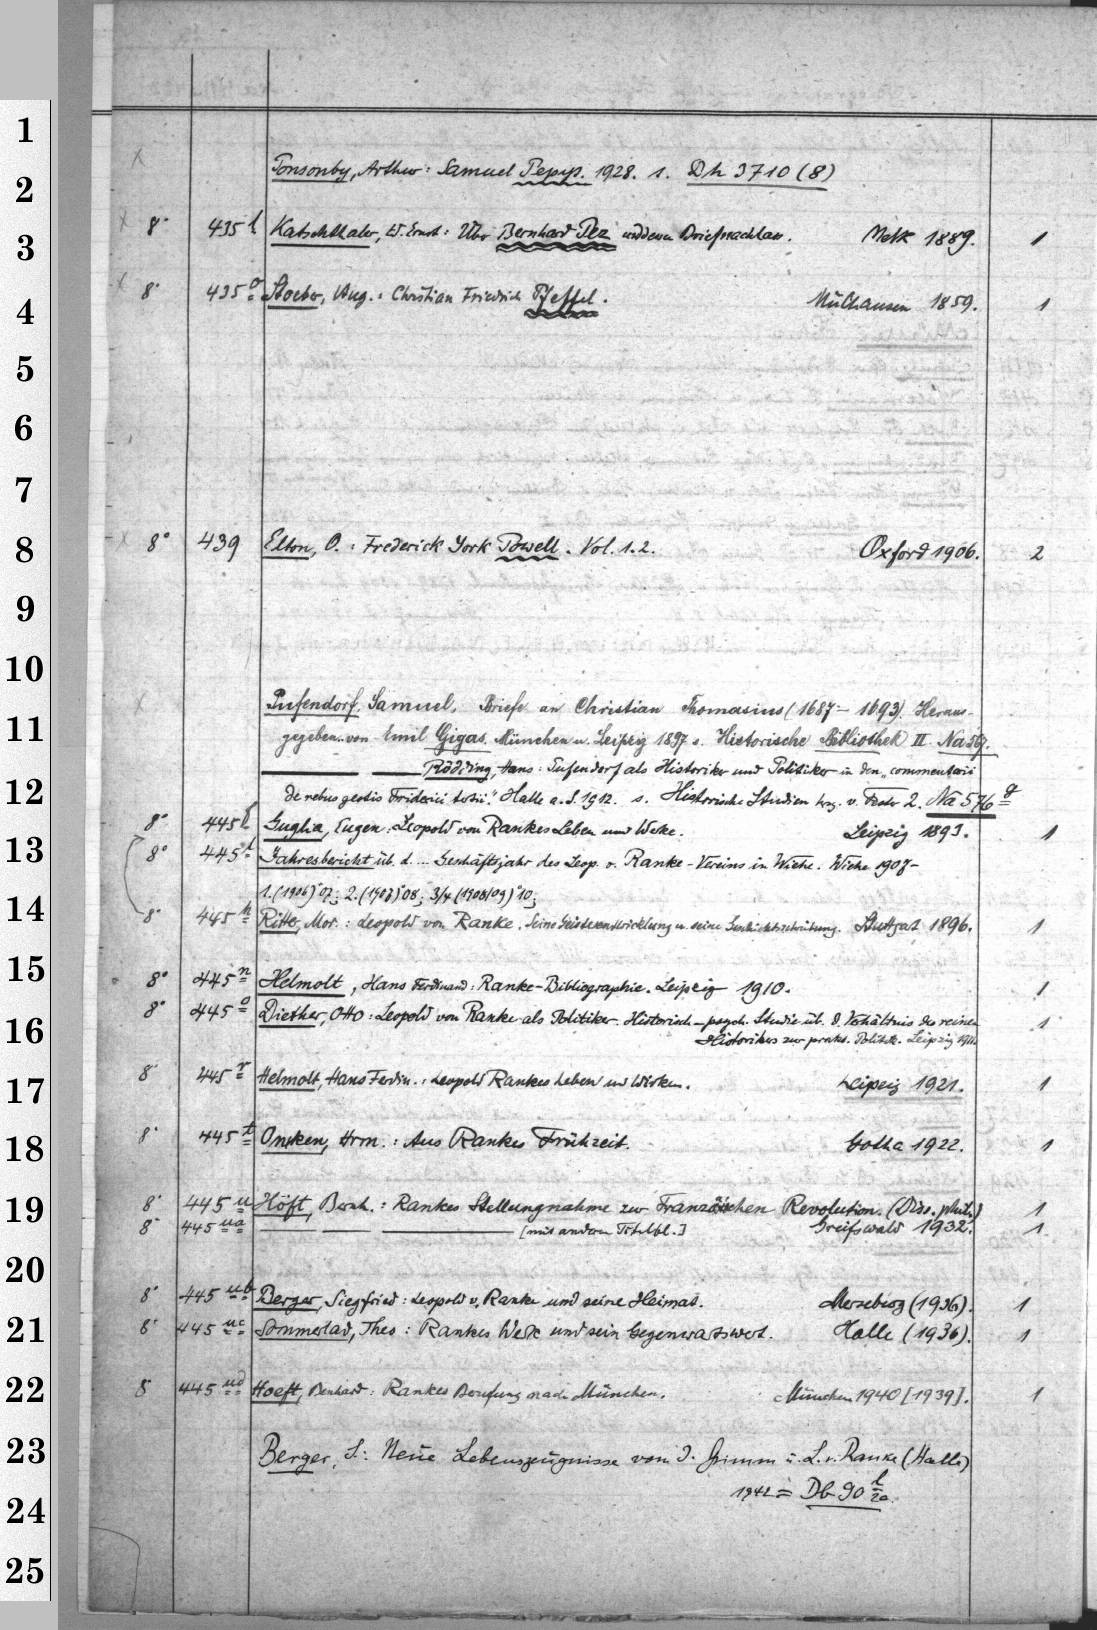 1
Ponsonby, Arthur: Samuel Pepys. 1928. s. Dh 3710 (8)
2
8° 435 l Katschthaler, E. Ernst: Über Bernhard Pez und dessen Briefnachlass. Melk 1889. 1
3
8° 435 o Stoeber, Aug.: Christian Friedrich Pfeffel. Mülhausen 1859. 1
4
5
6
7
8° 439 Elton, O.: Frederick York Powell. Vol. 1.2. Oxford 1906. 2
8
9
10
Pufendorf, Samuel, Briefe an Christian Thomasius (1687–1693). Heraus-
11
gegeben von Emil Gigas. München u. Leipzig 1897 s. Historische Bibliothek II. Na 567.
Rödding, Hans: Pufendorf als Historiker und Politiker in den „commentarii
12
de rebus gestis Friderici tertii." Halle a. S. 1912. s. Historische Studien hrsg. v. Fester 2. Na 576 g
8° 445 Guglia, Eugen: Leopold von Rankes Leben und Werke. Leipzig 1893. 1
13
8° 445 Jahresbericht üb. d. ... Geschäftsjahr des Leop. v. Ranke-Vereins in Wiehe. Wiehe 1907–
1. (1906)'07; 2. (1907)'08; 3/4 (1908/09)'10;
14
8° 445 Ritter, Mor.: Leopold von Ranke. Seine Geistesentwicklung u. seine Geschichtschreibung. Stuttgart 1896. 1
15
8° 445 n Helmolt, Hans Ferdinand: Ranke-Bibliographie. Leipzig 1910. 1
8° 445 o Diether, Otto: Leopold von Ranke als Politiker. Historisch-psych. Studie üb. d. Verhältnis des reinen 1
16
Historikers zur prakt. Politik. Leipzig 1911.
8° 445 r Helmolt, Hans Ferdin.: Leopold Rankes Leben und Wirken. Leipzig 1921. 1
17
8° 445 t Oncken, Hrm.: Aus Rankes Frühzeit. Gotha 1922. 1
18
8° 445 u Höft, Bernh.: Rankes Stellungnahme zur Französischen Revolution. (Diss. phil.) 1
19
8° 445 ua [mit anderem Titelbl.] Greifswald 1932. 1
20
8° 445 ub Berger, Siegfried: Leopold v. Ranke und seine Heimat. Merseburg (1936). 1
21
8° 445 uc Sommerlad, Theo: Rankes Werk und sein Gegenwartswert. Halle (1936). 1
22
8° 445 ud Hoeft, Bernhard: Rankes Berufung nach München. München 1940 [1939]. 1
23
Berger, S.: Neue Lebenszeugnisse von J. Grimm u. L. v. Ranke (Halle)
24
1942 = Db 90 l 2a.
25